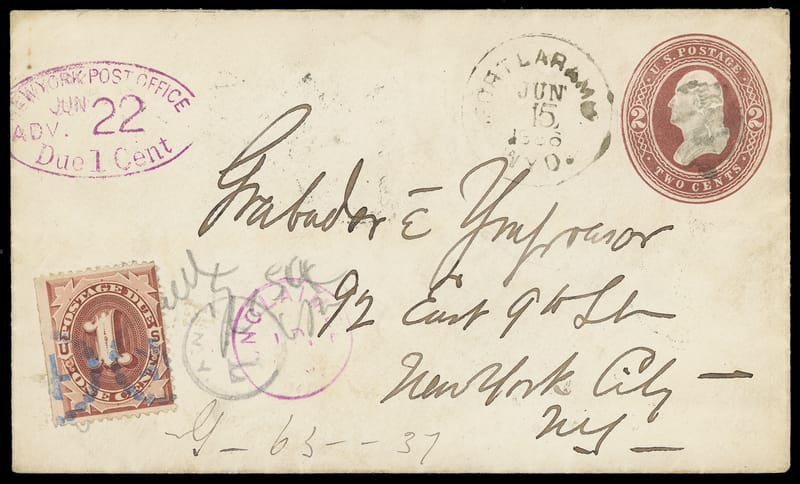 NEW YORK POST OFFICE
JUN
ADV. 22
Due 1 Cent
FORT LARAMIE
JUN
15
1886
WYO.
U.S. POSTAGE
2 2
TWO CENTS
Grabador E Ympresor
92 East 9th St
New York City
NY
POSTAGE DUE
1
ONE CENT
U S
G - 63 - - 37